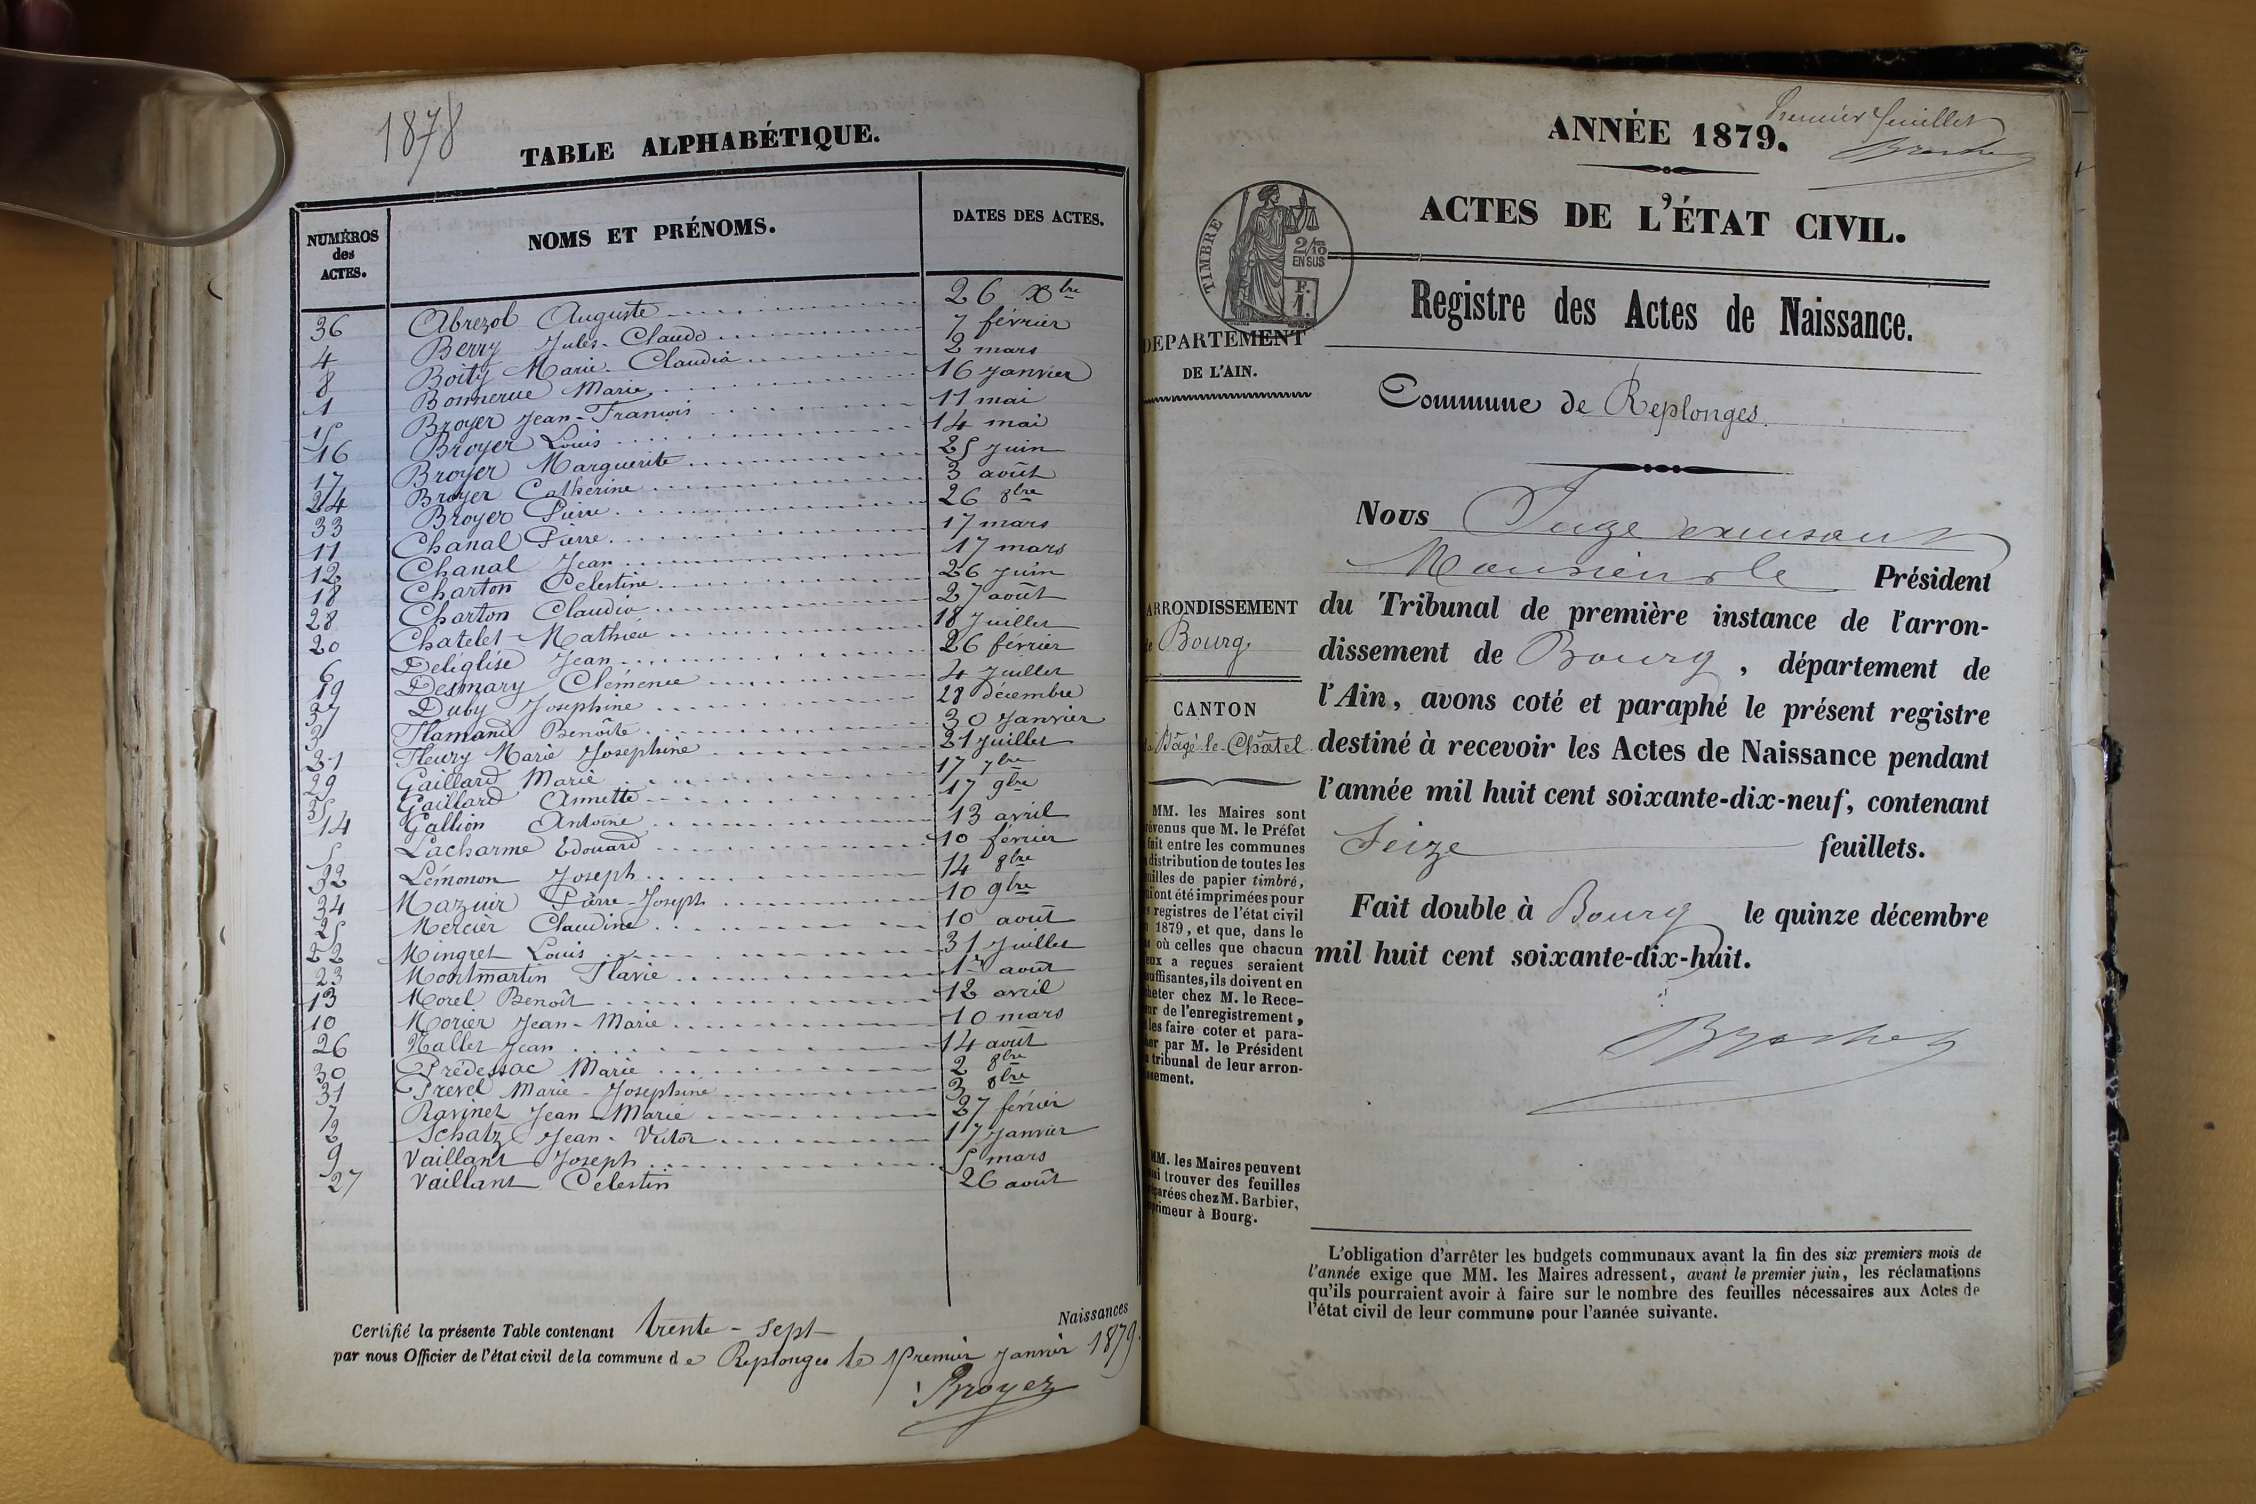 1878
TABLE ALPHABÉTIQUE.
NUMÉROS des ACTES. NOMS ET PRÉNOMS. DATES DES ACTES.
36 Abrezol Auguste 26 Xbre
4 Berry Jules-Claude 7 février
8 Boity Marie-Claudia 2 mars
1 Bonnerue Marie 16 Janvier
15 Broyer Jean-François 11 mai
16 Broyer Louis 14 mai
17 Broyer Marguerite 25 Juin
24 Broyer Catherine 3 août
33 Broyer Pierre 26 8bre
11 Chanal Pierre 17 mars
12 Chanal Jean 17 mars
18 Charton Célestine 26 Juin
28 Charton Claudia 27 août
20 Chatelet Mathieu 18 Juillet
6 Deliglise Jean 26 février
19 Desmary Clémence 4 Juillet
37 Duby Joséphine 28 décembre
3 Flamand Benoîte 30 Janvier
21 Fleury Marie Joséphine 21 Juillet
29 Gaillard Marie 17 7bre
35 Gaillard Annette 17 9bre
14 Gallion Antoine 13 avril
5 Lacharme Edouard 10 février
32 Lémonon Joseph 14 8bre
34 Mazuir Pierre-Joseph 10 9bre
25 Mercier Claudine 10 août
22 Mingret Louis 31 Juillet
23 Montmartin Flavie 1er août
13 Morel Benoît 12 avril
10 Morier Jean-Marie 10 mars
26 Nallet Jean 14 août
30 Prédessac Marie 2 8bre
31 Prevel Marie-Joséphine 3 8bre
7 Ravinet Jean-Marie 27 février
2 Schatz Jean-Victor 17 Janvier
9 Vaillant Joseph 5 mars
27 Vaillant Célestin 26 août
Certifié la présente Table contenant trente-sept Naissances
par nous Officier de l'état civil de la commune de Replonges le premier Janvier 1879.
Broyer
Premier feuillet
ANNÉE 1879.
ACTES DE L'ÉTAT CIVIL.
TIMBRE
2/10 EN SUS
F. 1.
Registre des Actes de Naissance.
DÉPARTEMENT
DE L'AIN.
Commune de Replonges.
Nous Juge
Monsieur le Président
ARRONDISSEMENT
de Bourg.
du Tribunal de première instance de l'arron-
dissement de Bourg, département de
l'Ain, avons coté et paraphé le présent registre
destiné à recevoir les Actes de Naissance pendant
l'année mil huit cent soixante-dix-neuf, contenant
Seize feuillets.
Fait double à Bourg le quinze décembre
mil huit cent soixante-dix-huit.
CANTON
Bâgé-le-Châtel
MM. les Maires sont
révenus que M. le Préfet
fait entre les communes
distribution de toutes les
uilles de papier timbré,
ui ont été imprimées pour
s registres de l'état civil
1879, et que, dans le
s où celles que chacun
eux a reçues seraient
suffisantes, ils doivent en
heter chez M. le Rece-
ur de l'enregistrement,
les faire coter et para-
her par M. le Président
tribunal de leur arron-
ssement.
MM. les Maires peuvent
ssi trouver des feuilles
éparées chez M. Barbier,
primeur à Bourg.
L'obligation d'arrêter les budgets communaux avant la fin des six premiers mois de
l'année exige que MM. les Maires adressent, avant le premier juin, les réclamations
qu'ils pourraient avoir à faire sur le nombre des feuilles nécessaires aux Actes de
l'état civil de leur commune pour l'année suivante.